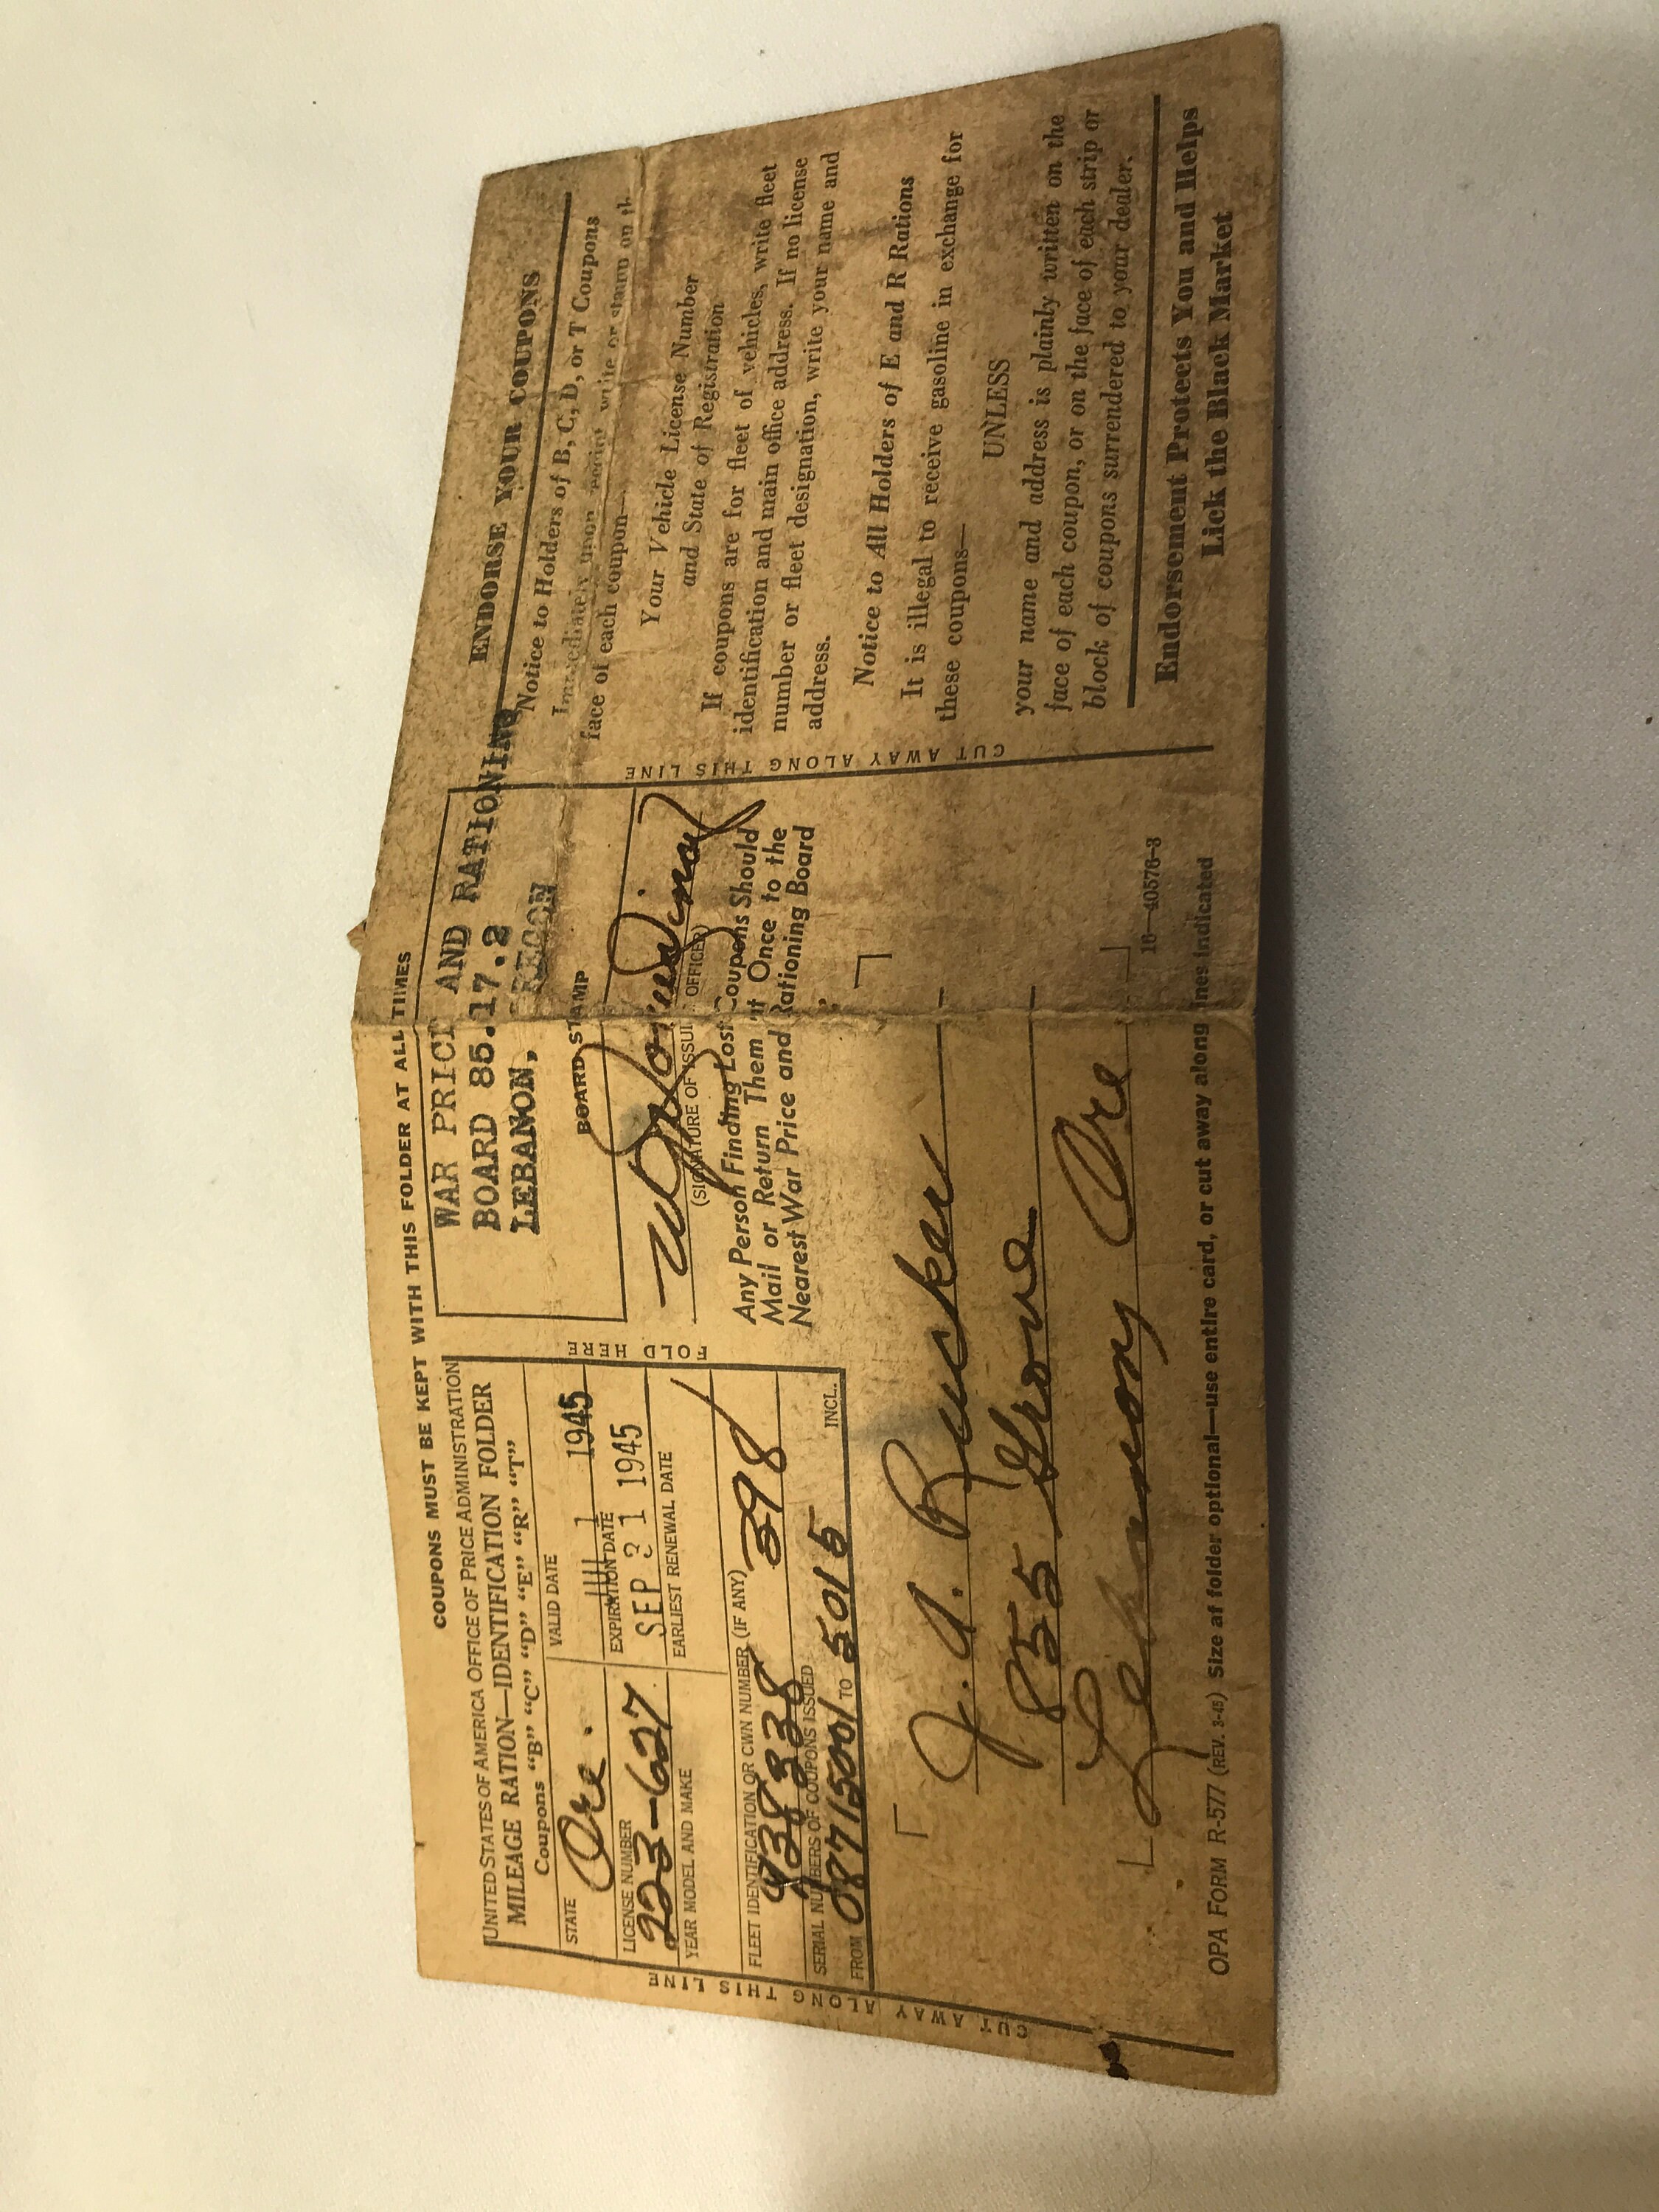 COUPONS MUST BE KEPT WITH THIS FOLDER AT ALL TIMES
UNITED STATES OF AMERICA OFFICE OF PRICE ADMINISTRATION
MILEAGE RATION—IDENTIFICATION FOLDER
Coupons "B" "C" "D" "E" "R" "T"
STATE
Ore.
VALID DATE
1 1945
LICENSE NUMBER
223-627
EXPIRATION DATE
SEP 1 1945
YEAR MODEL AND MAKE
EARLIEST RENEWAL DATE
FLEET IDENTIFICATION OR CWN NUMBER (IF ANY)
398
SERIAL NUMBERS OF COUPONS ISSUED
FROM 08715001 TO 5015 INCL.
CUT AWAY ALONG THIS LINE
FOLD HERE
WAR PRICE AND RATIONING
BOARD 85.17.2
LEBANON, OREGON
BOARD STAMP
(SIGNATURE OF ISSUING OFFICER)
Any Person Finding Lost Coupons Should
Mail or Return Them at Once to the
Nearest War Price and Rationing Board
J. A. Rucker
855 Grove
Lebanon, Ore
16—40576-3
OPA FORM R-577 (REV. 3-45) Size of folder optional—use entire card, or cut away along lines indicated
CUT AWAY ALONG THIS LINE
ENDORSE YOUR COUPONS
Notice to Holders of B, C, D, or T Coupons
Immediately upon receipt write or stamp on th
face of each coupon—
Your Vehicle License Number
and State of Registration
If coupons are for fleet of vehicles, write fleet
identification and main office address. If no license
number or fleet designation, write your name and
address.
Notice to All Holders of E and R Rations
It is illegal to receive gasoline in exchange for
these coupons—
UNLESS
your name and address is plainly written on the
face of each coupon, or on the face of each strip or
block of coupons surrendered to your dealer.
Endorsement Protects You and Helps
Lick the Black Market